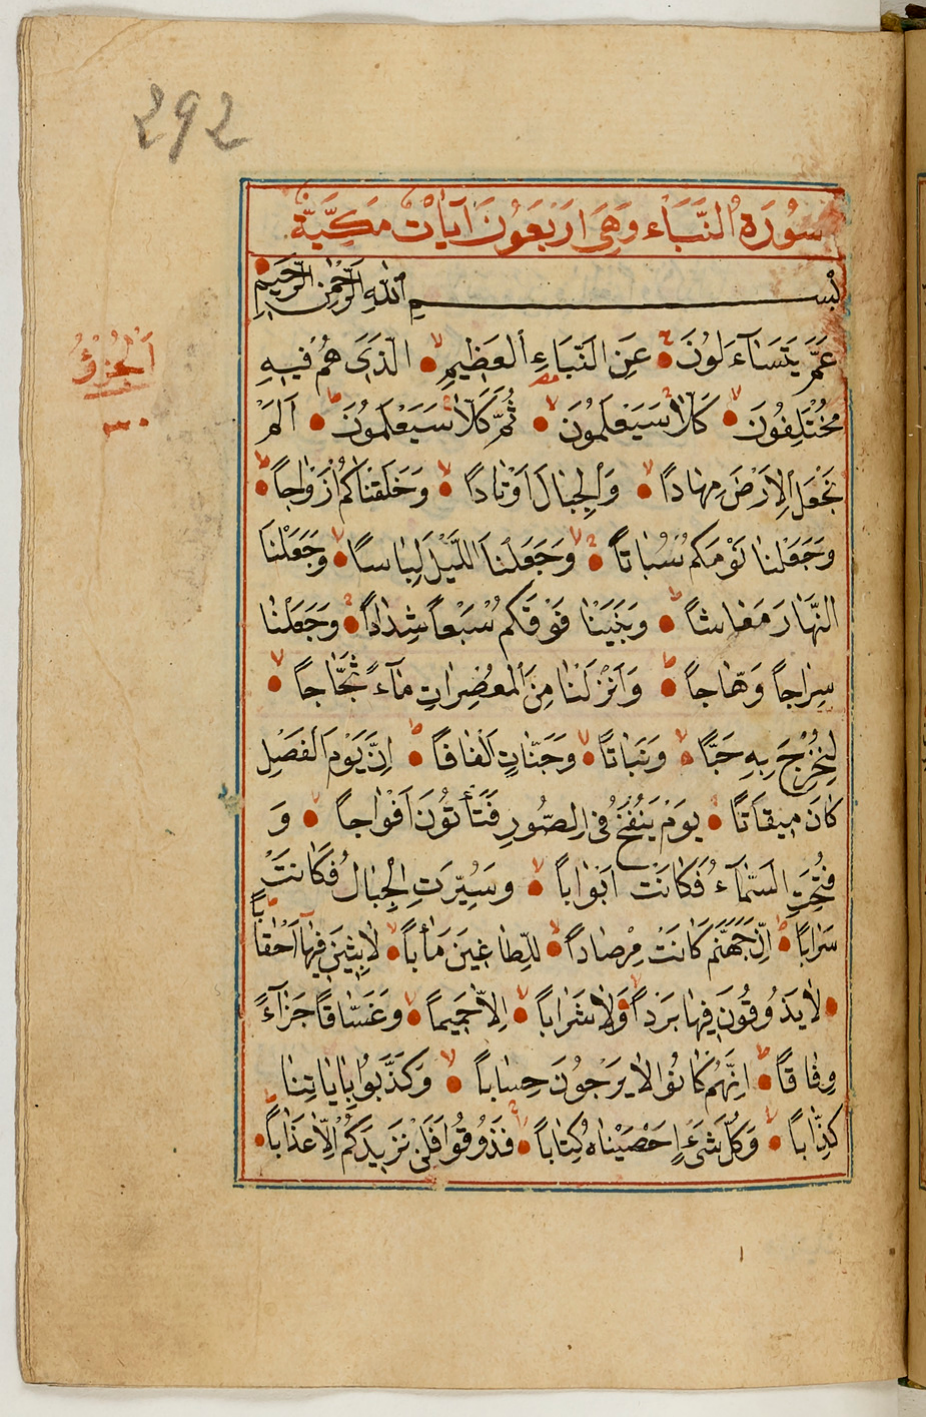 292
سُورَةُ النَّبَاءِ وَهِيَ اَرْبَعُونَ آيَاتٌ مَكِّيَّةٌ
بِسْمِ اللّٰهِ الرَّحْمٰنِ الرَّحِيمِ
عَمَّ يَتَسَآءَلُونَ عَنِ النَّبَاءِ الْعَظِيمِ الَّذِى هُمْ فِيهِ
مُخْتَلِفُونَ كَلَّا سَيَعْلَمُونَ ثُمَّ كَلَّا سَيَعْلَمُونَ اَلَمْ
اَلْجُزْؤُ
٣٠
نَجْعَلِ الْاَرْضَ مِهَاداً وَالْجِبَالَ اَوْتَاداً وَخَلَقْنَاكُمْ اَزْوَاجاً
وَجَعَلْنَا نَوْمَكُمْ سُبَاتاً وَجَعَلْنَا اللَّيْلَ لِبَاساً وَجَعَلْنَا
النَّهَارَ مَعَاشاً وَبَنَيْنَا فَوْقَكُمْ سَبْعاً شِدَاداً وَجَعَلْنَا
سِرَاجاً وَهَّاجاً وَاَنْزَلْنَا مِنَ الْمُعْصِرَاتِ مَآءً ثَجَّاجاً
لِنُخْرِجَ بِهِ حَبًّا وَنَبَاتاً وَجَنَّاتٍ اَلْفَافاً اِنَّ يَوْمَ الْفَصْلِ
كَانَ مِيقَاتاً يَوْمَ يُنْفَخُ فِى الصُّورِ فَتَأْتُونَ اَفْوَاجاً وَ
فُتِحَتِ السَّمَآءُ فَكَانَتْ اَبْوَاباً وَسُيِّرَتِ الْجِبَالُ فَكَانَتْ
سَرَاباً اِنَّ جَهَنَّمَ كَانَتْ مِرْصَاداً لِلطَّاغِينَ مَأٰباً لَابِثِينَ فِيهَآ اَحْقَاباً
لَا يَذُوقُونَ فِيهَا بَرْداً وَلَا شَرَاباً اِلَّا حَمِيماً وَغَسَّاقاً جَزَآءً
وِفَاقاً اِنَّهُمْ كَانُوا لَا يَرْجُونَ حِسَاباً وَكَذَّبُوا بِاٰيَاتِنَا
كِذَّاباً وَكُلَّ شَىْءٍ اَحْصَيْنَاهُ كِتَاباً فَذُوقُوا فَلَنْ نَزِيدَكُمْ اِلَّا عَذَاباً